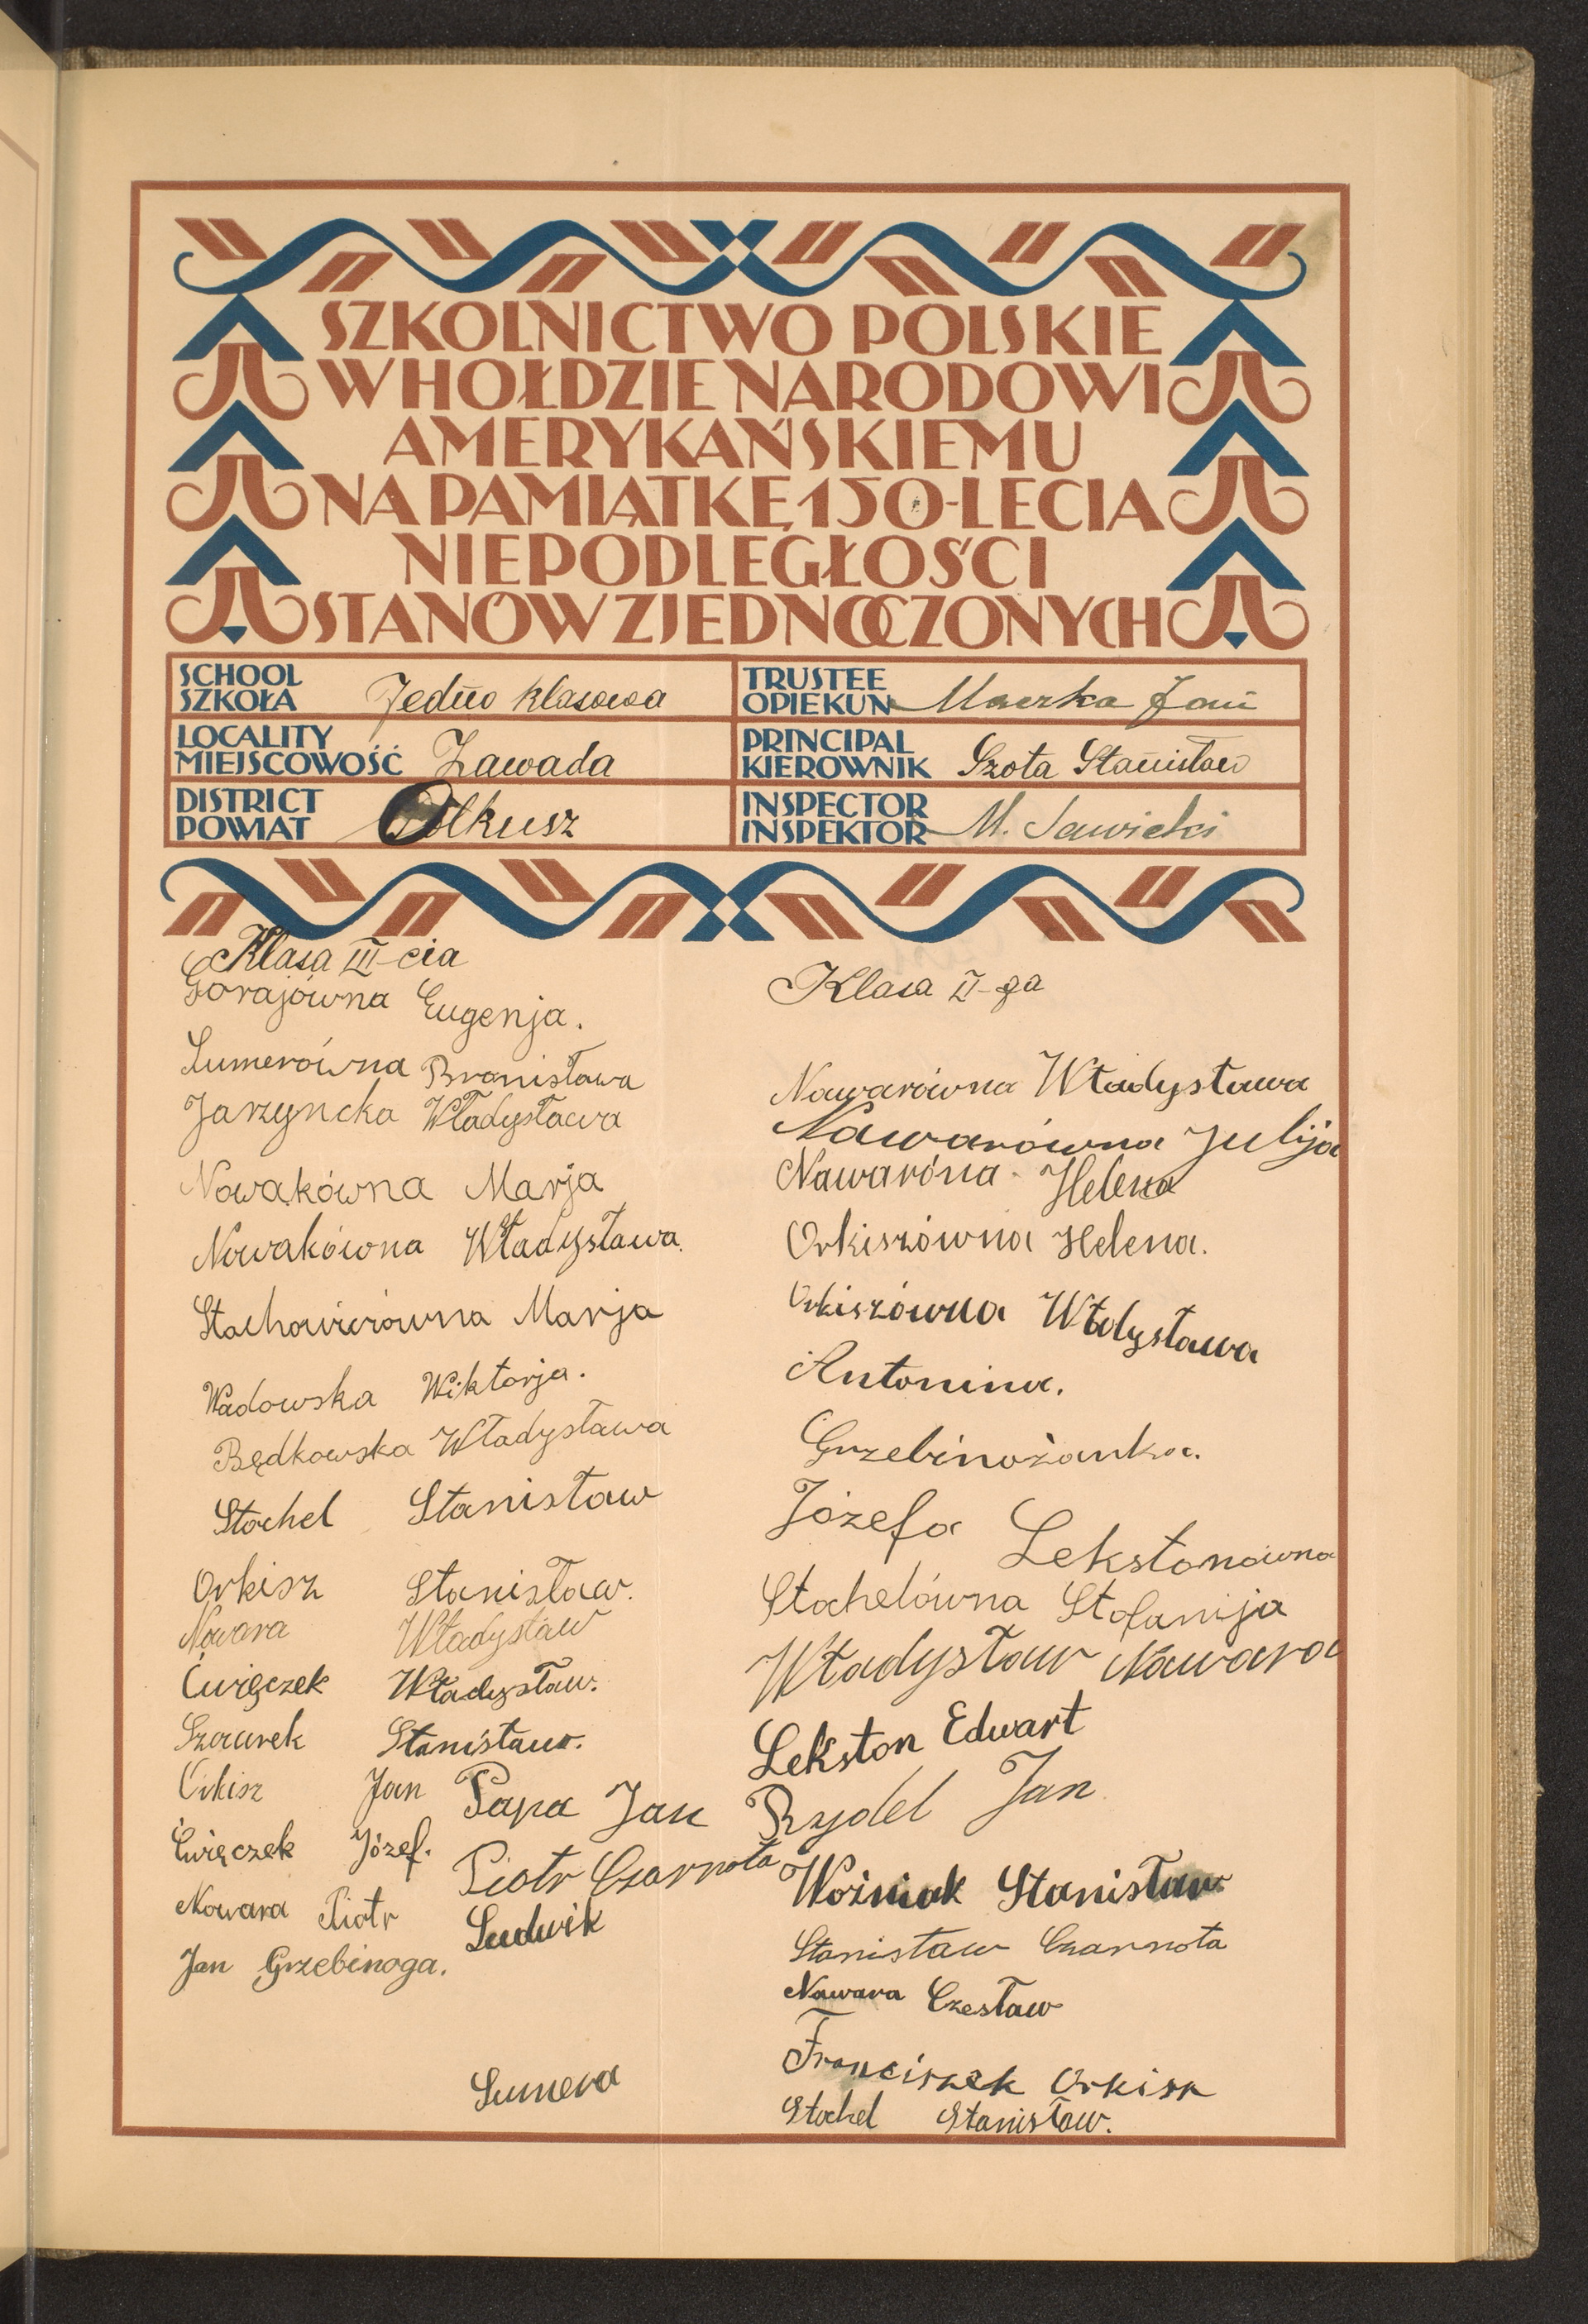 SZKOLNICTWO POLSKIE
W HOŁDZIE NARODOWI
AMERYKAŃSKIEMU
NA PAMIĄTKĘ 150-LECIA
NIEPODLEGŁOŚCI
STANÓW ZJEDNOCZONYCH
SCHOOL
SZKOŁA Jedno klasowa
TRUSTEE
OPIEKUN Maerka Jan
LOCALITY
MIEJSCOWOŚĆ Zawada
PRINCIPAL
KIEROWNIK Szota Stanisław
DISTRICT
POWIAT Olkusz
INSPECTOR
INSPEKTOR M. Sawicki
Klasa III-cia
Gorajówna Eugenja.
Sumerówna Bronisława
Jarzyncka Władysława
Nowakówna Marja
Nowakówna Władysława.
Marja
Wadowska Wiktorja.
Będkowska Władysława
Stachel Stanisław
Orkisz Stanisław.
Nawara Władysław
Ćwięczek Władysław.
Szczurek Stanisław.
Orkisz Jan
Ćwięczek Józef.
Nowara Piotr
Jan Grzebinoga.
Papa Jan
Piotr Czarnota
Ludwik
Sumera
Klasa II-ga
Nawarówna Władysława
Nawarówna Julija
Nawaróna Helena
Orkiszówna Helena.
Orkiszówna Włdysława
Antonina.
Grzebinożanka.
Józefa Lekstonówna
Stachelówna Stefanija
Władysław Nawara
Lekston Edwart
Rydel Jan
Woźniak Stanisław
Stanisław Czarnota
Nawara Czesław
Franciszek Orkisz
Stachel Stanisław.